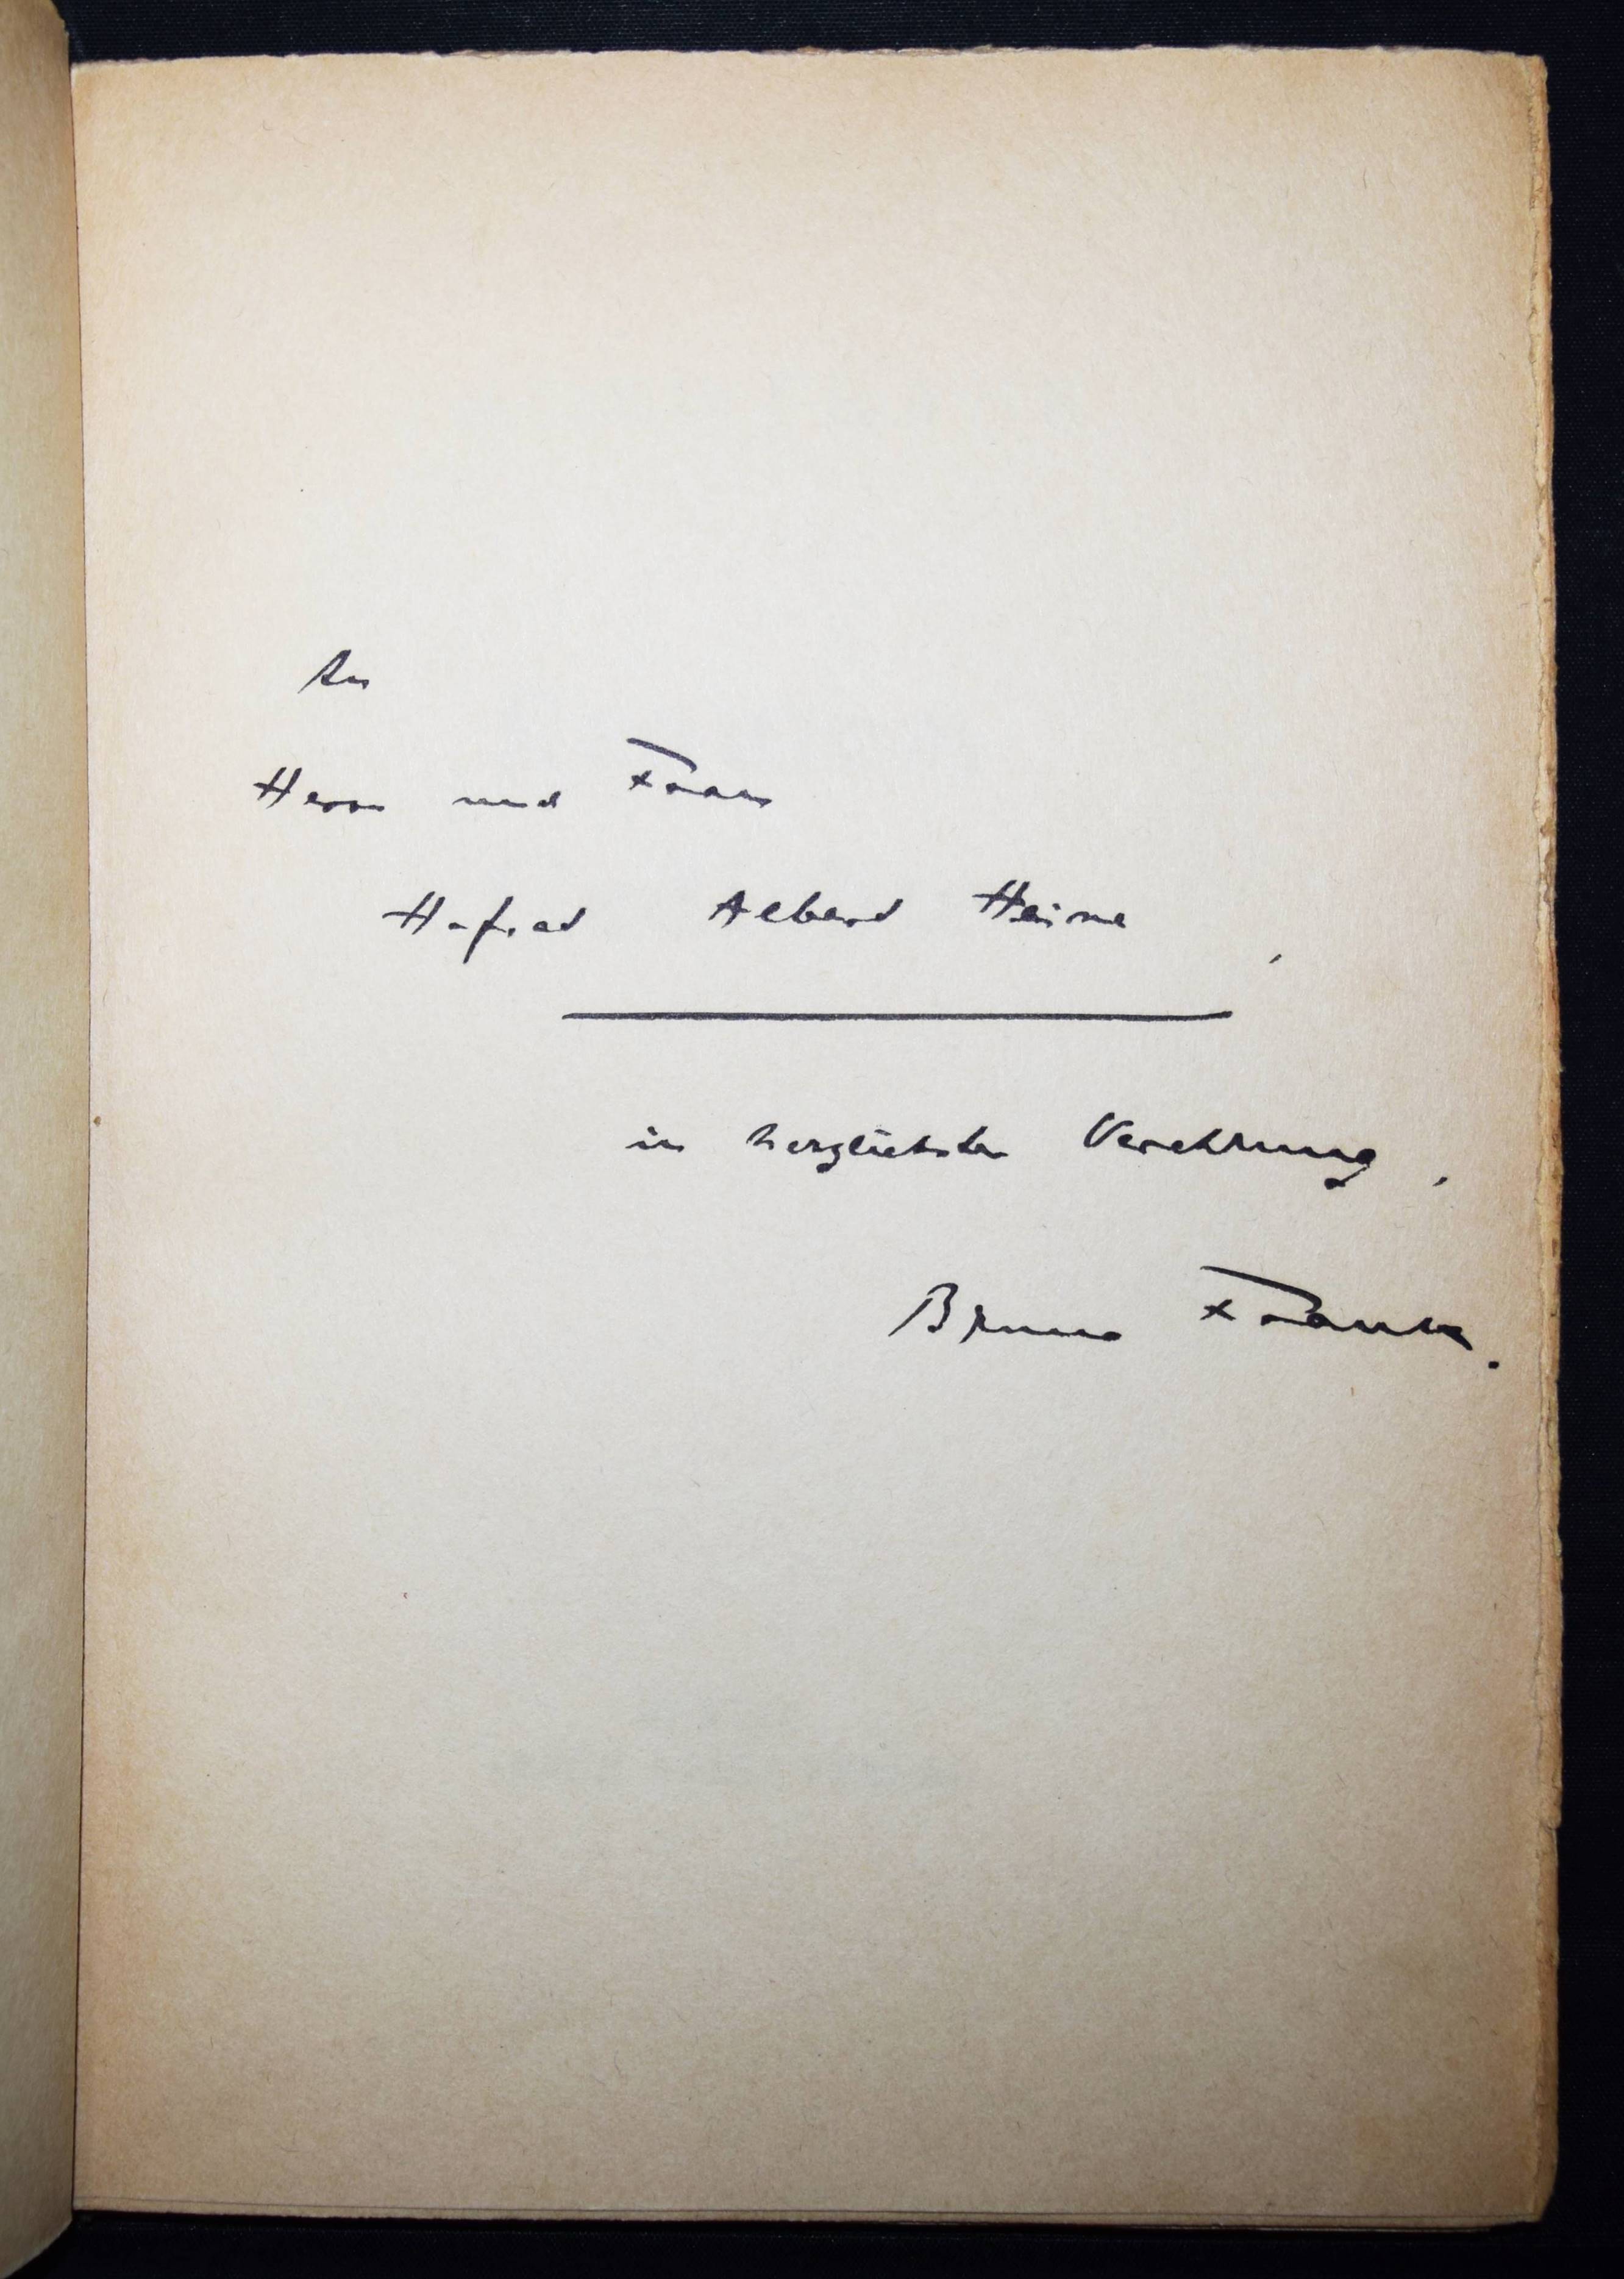 An
Herrn und Frau
Hofrat Albert Heine,
in herzlichster Verehrung,
Bruno Frank.